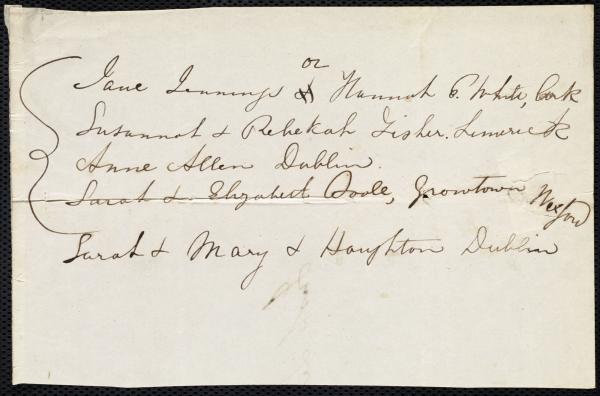 or
Jane Jennings & Hannah C. White, Cork
Susannah & Rebekah Fisher. Limerick
Anne Allen Dublin.
Sarah & Elizabeth Poole, Growtown Wexford
Sarah & Mary & Haughton Dublin